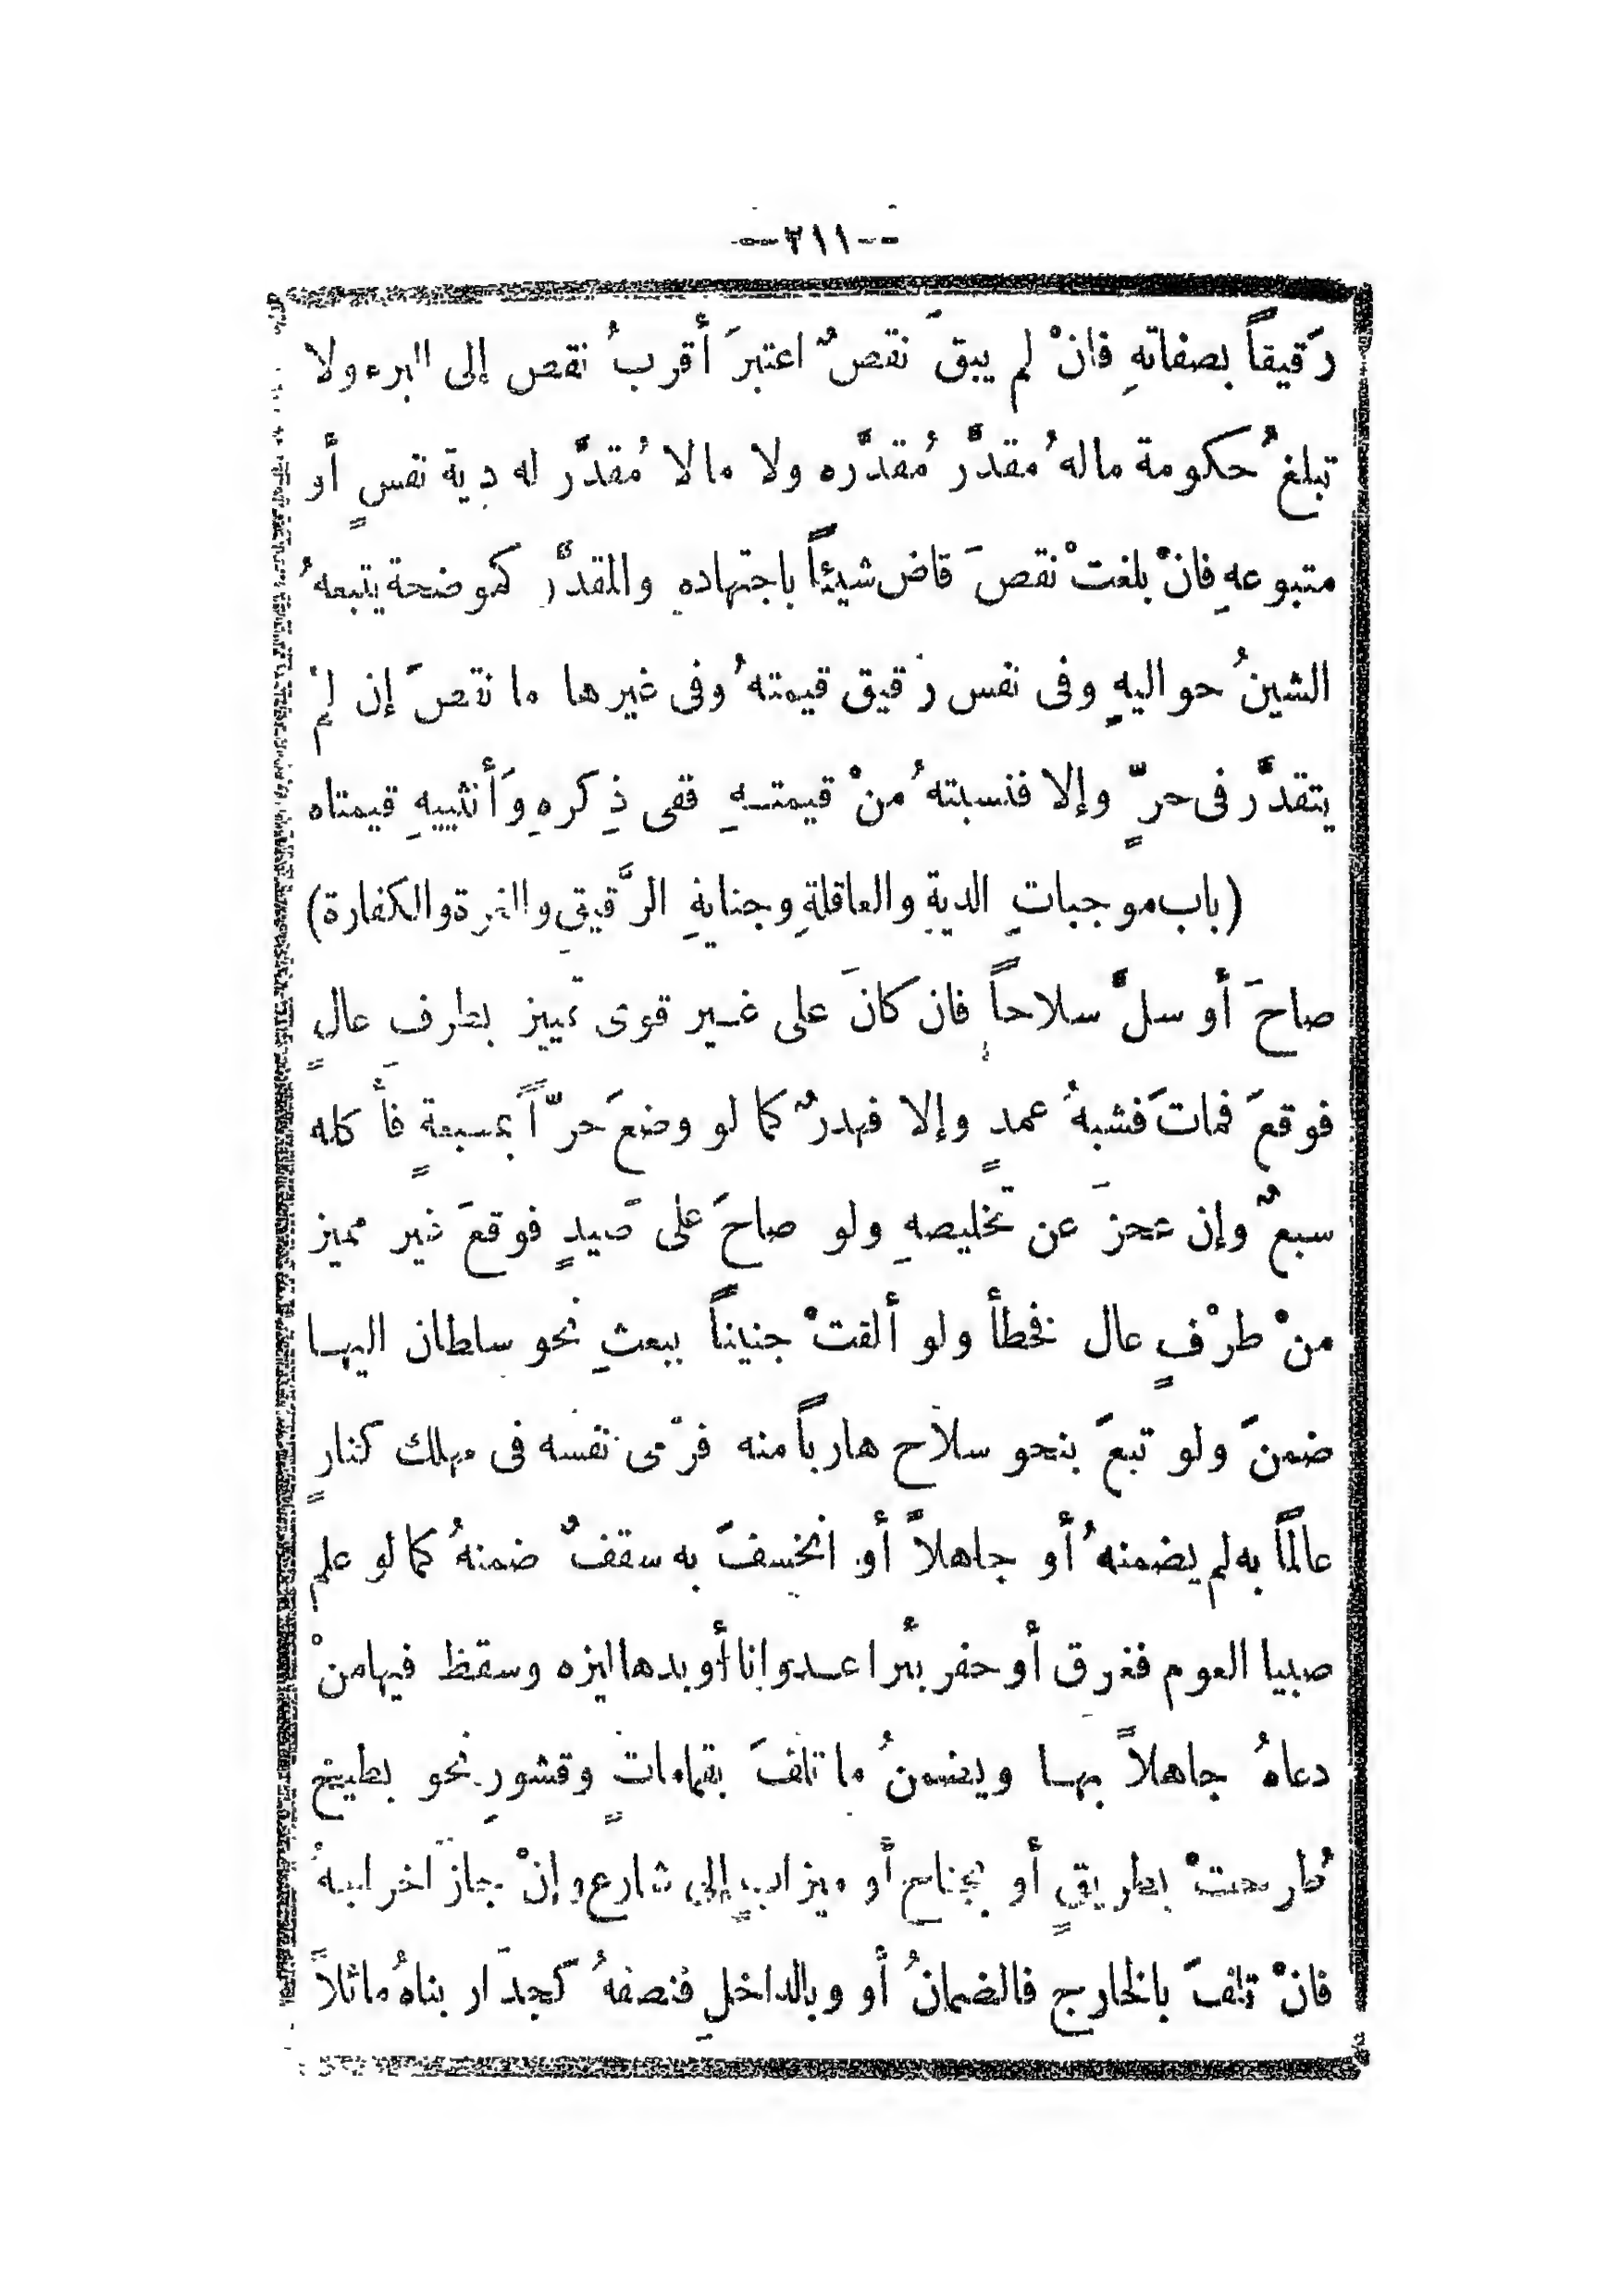 --٢١١--
رَقيقاً بصفاتهِ فانْ لم يبقَ نقصٌ اعتبرَ أقربُ نقص إلى البرء ولا
تبلغُ حكومة مالهُ مُقدَّر مُقدَّره ولا مالا مُقدَّر له دية نفسٍ أو
متبوعهِ فانْ بلغتْ نقصَ قاض شيئاً باجتهادهِ والمقدَّر كموضحة يتبعهُ
الشينُ حواليهِ وفى نفس رَقيق قيمتهُ وفى غيرها ما نقصَ إن لمْ
يتقدَّر فى حرٍّ وإلا فنسبتهُ منْ قيمتهِ ففى ذِكرهِ وَأنثييهِ قيمتاه
(باب موجباتِ الديةِ والعاقلةِ وجنايةِ الرَّقيقِ والغرة والكفارة)
صاحَ أو سلَّ سلاحاً فان كانَ على غير قوى تمييز بطرف عالٍ
فوقعَ فماتَ فشبهُ عمدٍ وإلا فهدرٌ كما لو وضعَ حرّاً بمسبعةٍ فأكله
سبعٌ وإن عجزَ عن تخليصهِ ولو صاحَ على صَيدٍ فوقعَ غير مميز
منْ طرْفٍ عال فخطأ ولو ألقتْ جنيناً ببعثِ نحو سلطان اليها
ضمنَ ولو تبعَ بنحو سلاح هارباً منه فرَمى نفسه فى مهلك كنارٍ
عالماً به لم يضمنهُ أو جاهلاً أو انخسفَ به سقفٌ ضمنهُ كما لو علم
صبيا العوم فغرق أو حفر بئرا عدوانا أو بدهاليزه وسقط فيها منْ
دعاهُ جاهلاً بها ويضمنُ ما تلفَ بقماماتٍ وقشورِ نحو بطيخ
طُرحتْ بطريقٍ أو بجناح أو ميزابٍ إلى شارع وإنْ جاز اخراجهُ
فانْ تلفَ بالخارج فالضمانُ أو وبالداخلِ فنصفهُ كجدَار بناهُ مائلاً